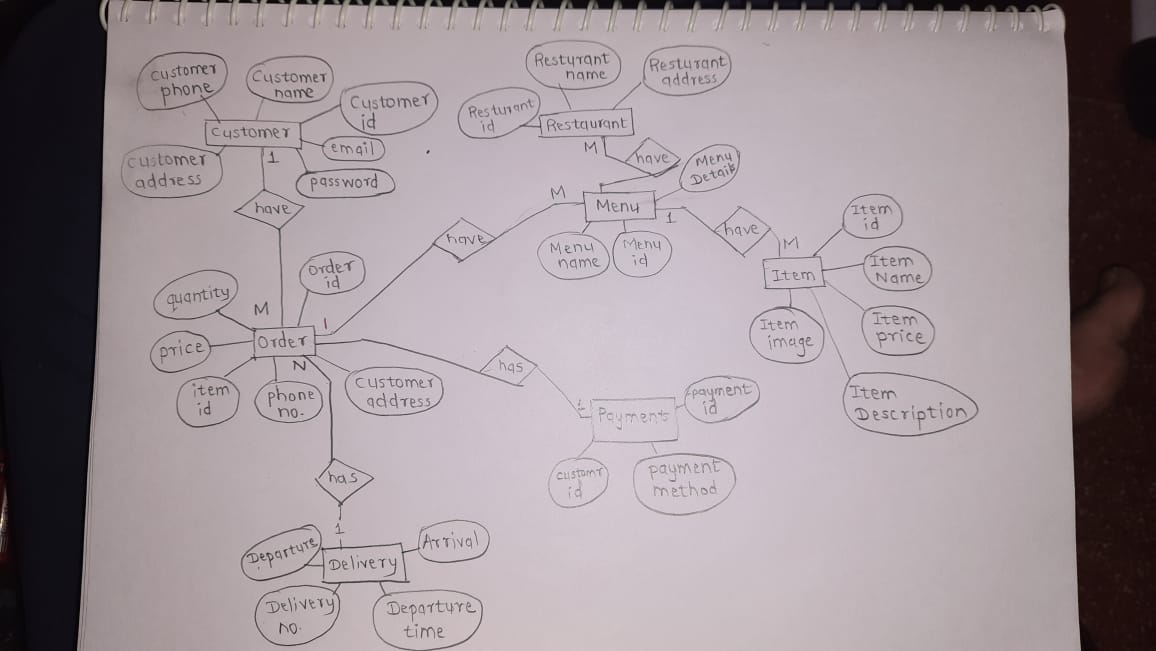 Customer
phone
Customer
name
Customer
id
Customer
email
Customer
address
password
1
have
Resturant
name
Resturant
address
Resturant
id
Restaurant
M
have
Menu
Details
M
Menu
1
have
Menu
name
Menu
id
have
M
Item
id
Item
Item
Name
Item
image
Item
price
Item
Description
quantity
Order
id
M
1
price
Order
N
item
id
phone
no.
Customer
address
has
1
Payments
payment
id
customr
id
payment
method
has
1
Departure
Arrival
Delivery
Delivery
no.
Departure
time